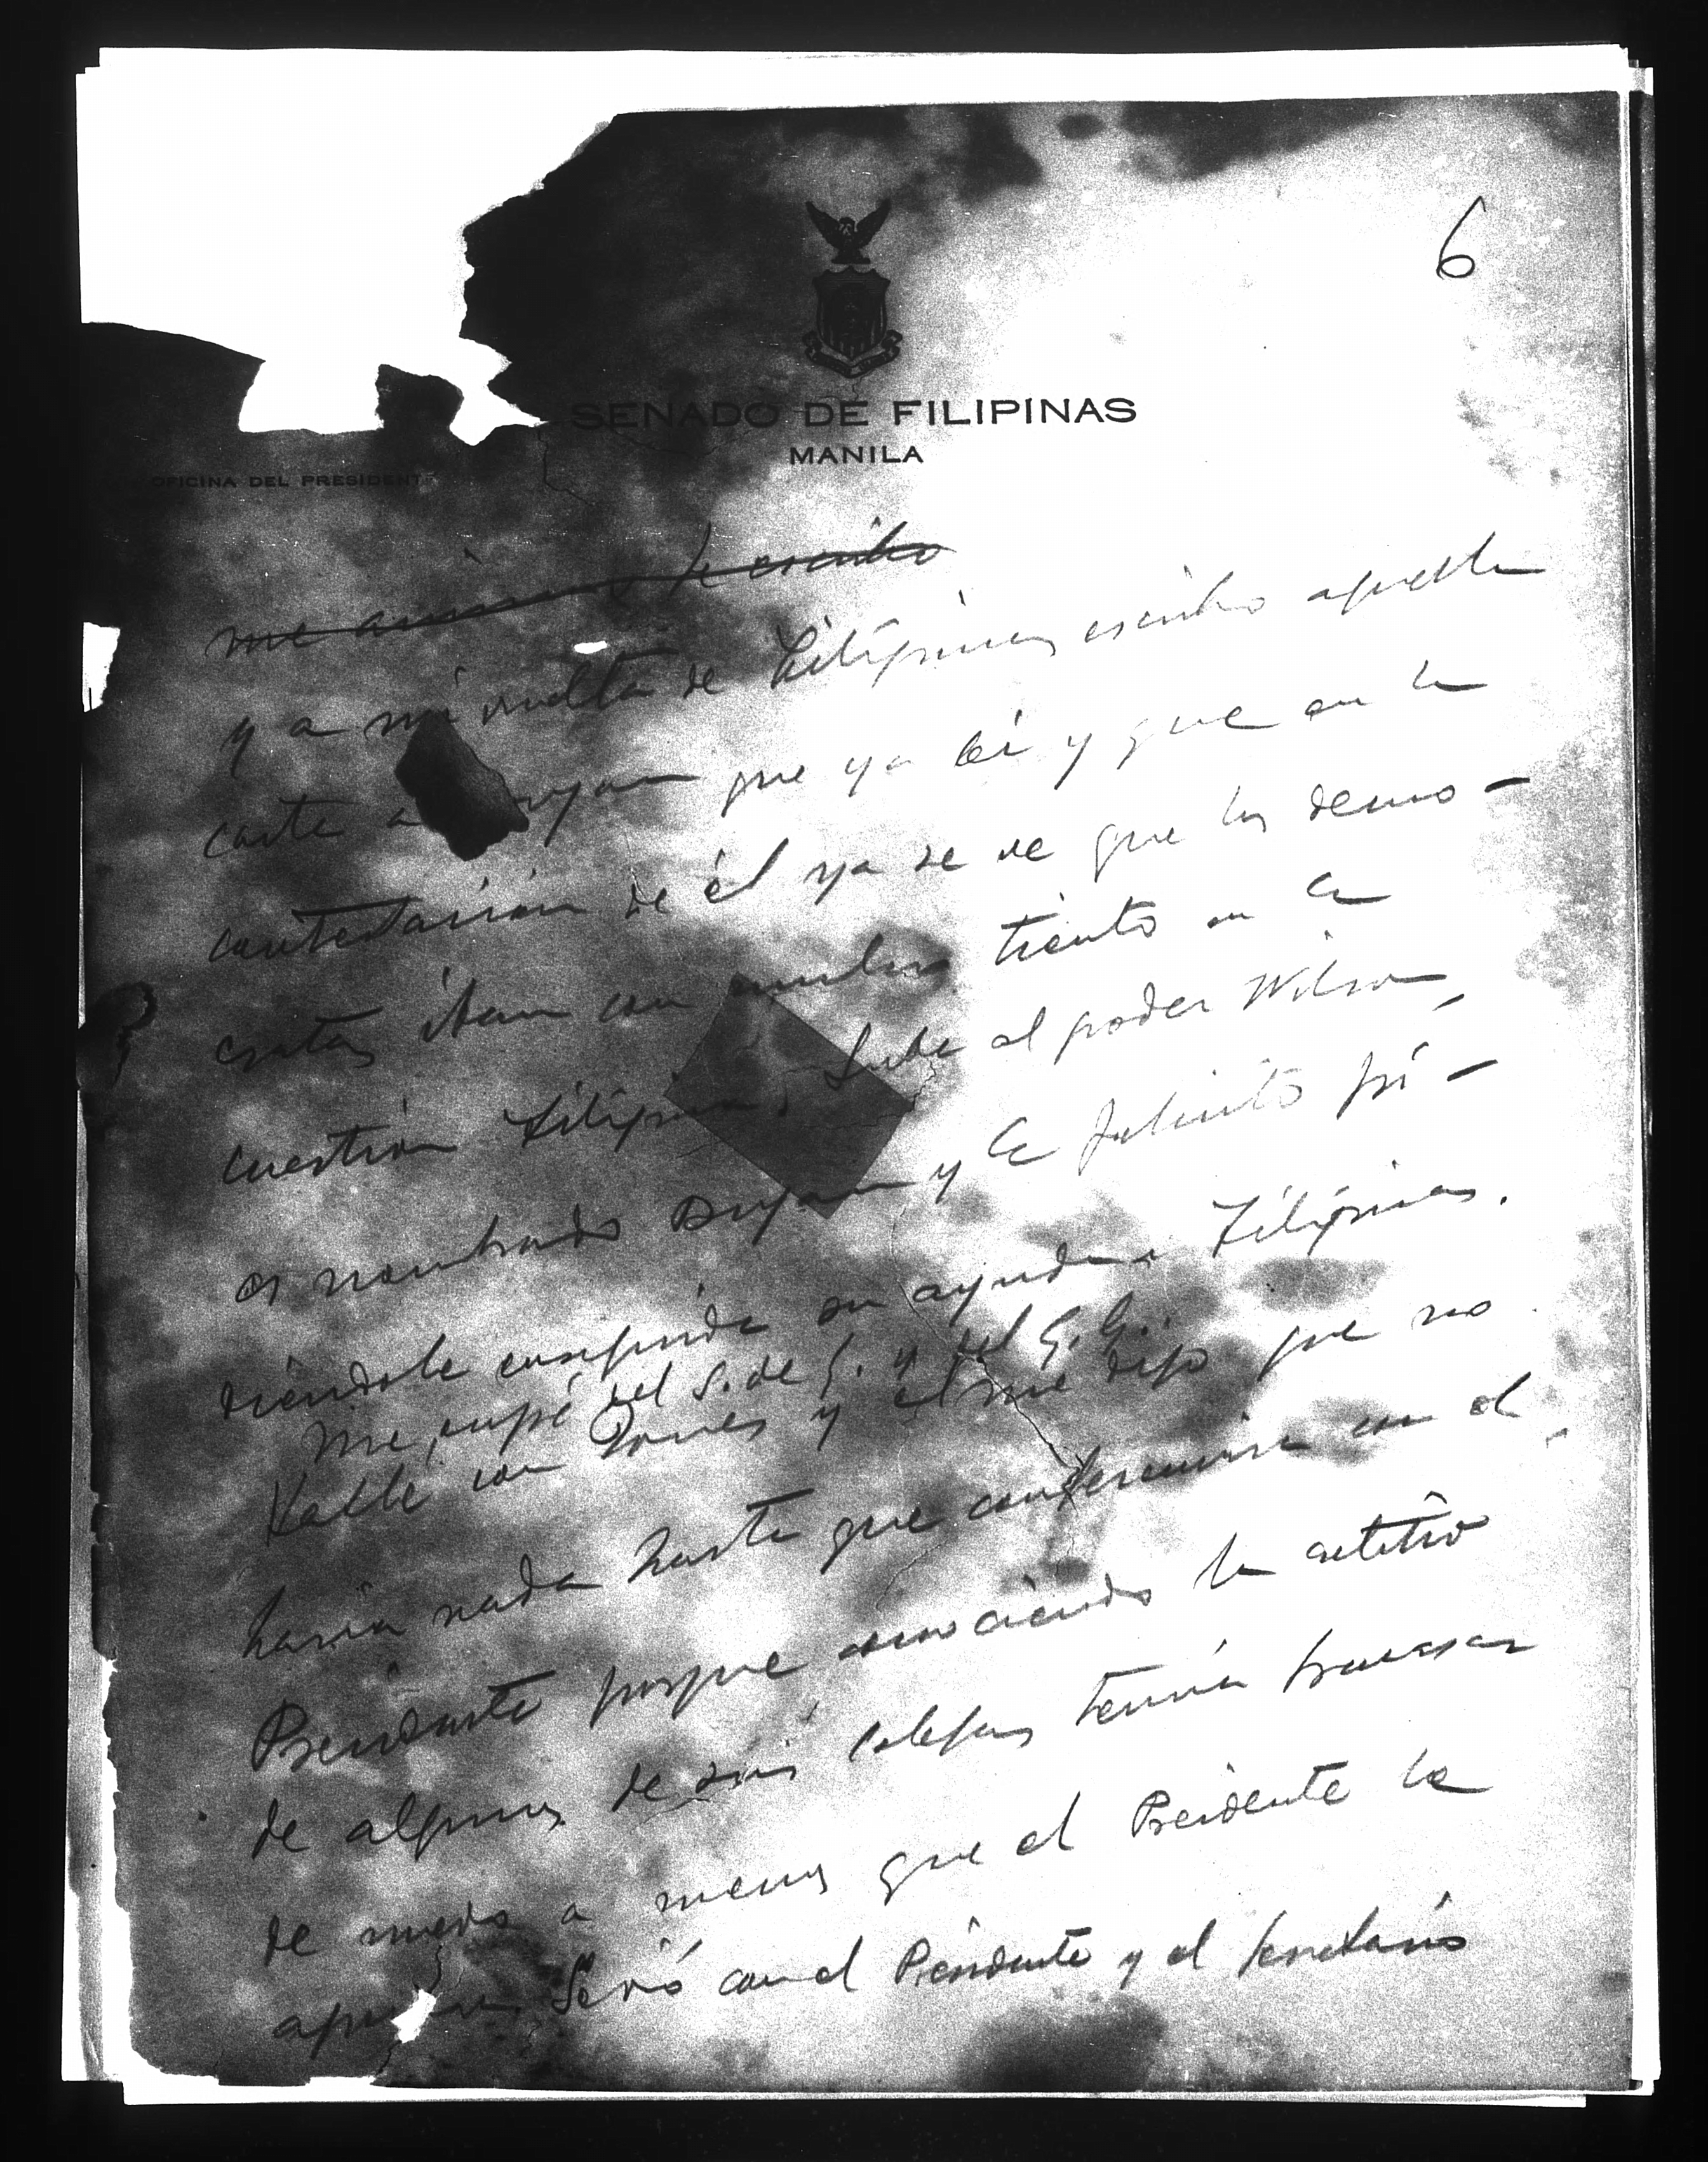 6
SENADO DE FILIPINAS
MANILA
OFICINA DEL PRESIDENT
me le escribo
y a mi vuelta de Filipinas escribo aquella
carta a ryan que ya leí y que en la
contestación de él ya se ve que los demo-
cratas iban con mucho tiento en la
cuestión Filipina. Sube al poder Wilson,
es nombrado Bryan y le felicito pi-
diéndole enseguida su ayuda a Filipinas.
Me ocupé del S. de G. y del G. G.
Hablé con Jones y el me dijo que no
haria nada hasta que conferencia con el
Presidente porque conociendo la actitud
de algunos de sus colegas temia fracasar
de nuevo a menos que el Presidente le
Se vió con el Presidente y el Secretario